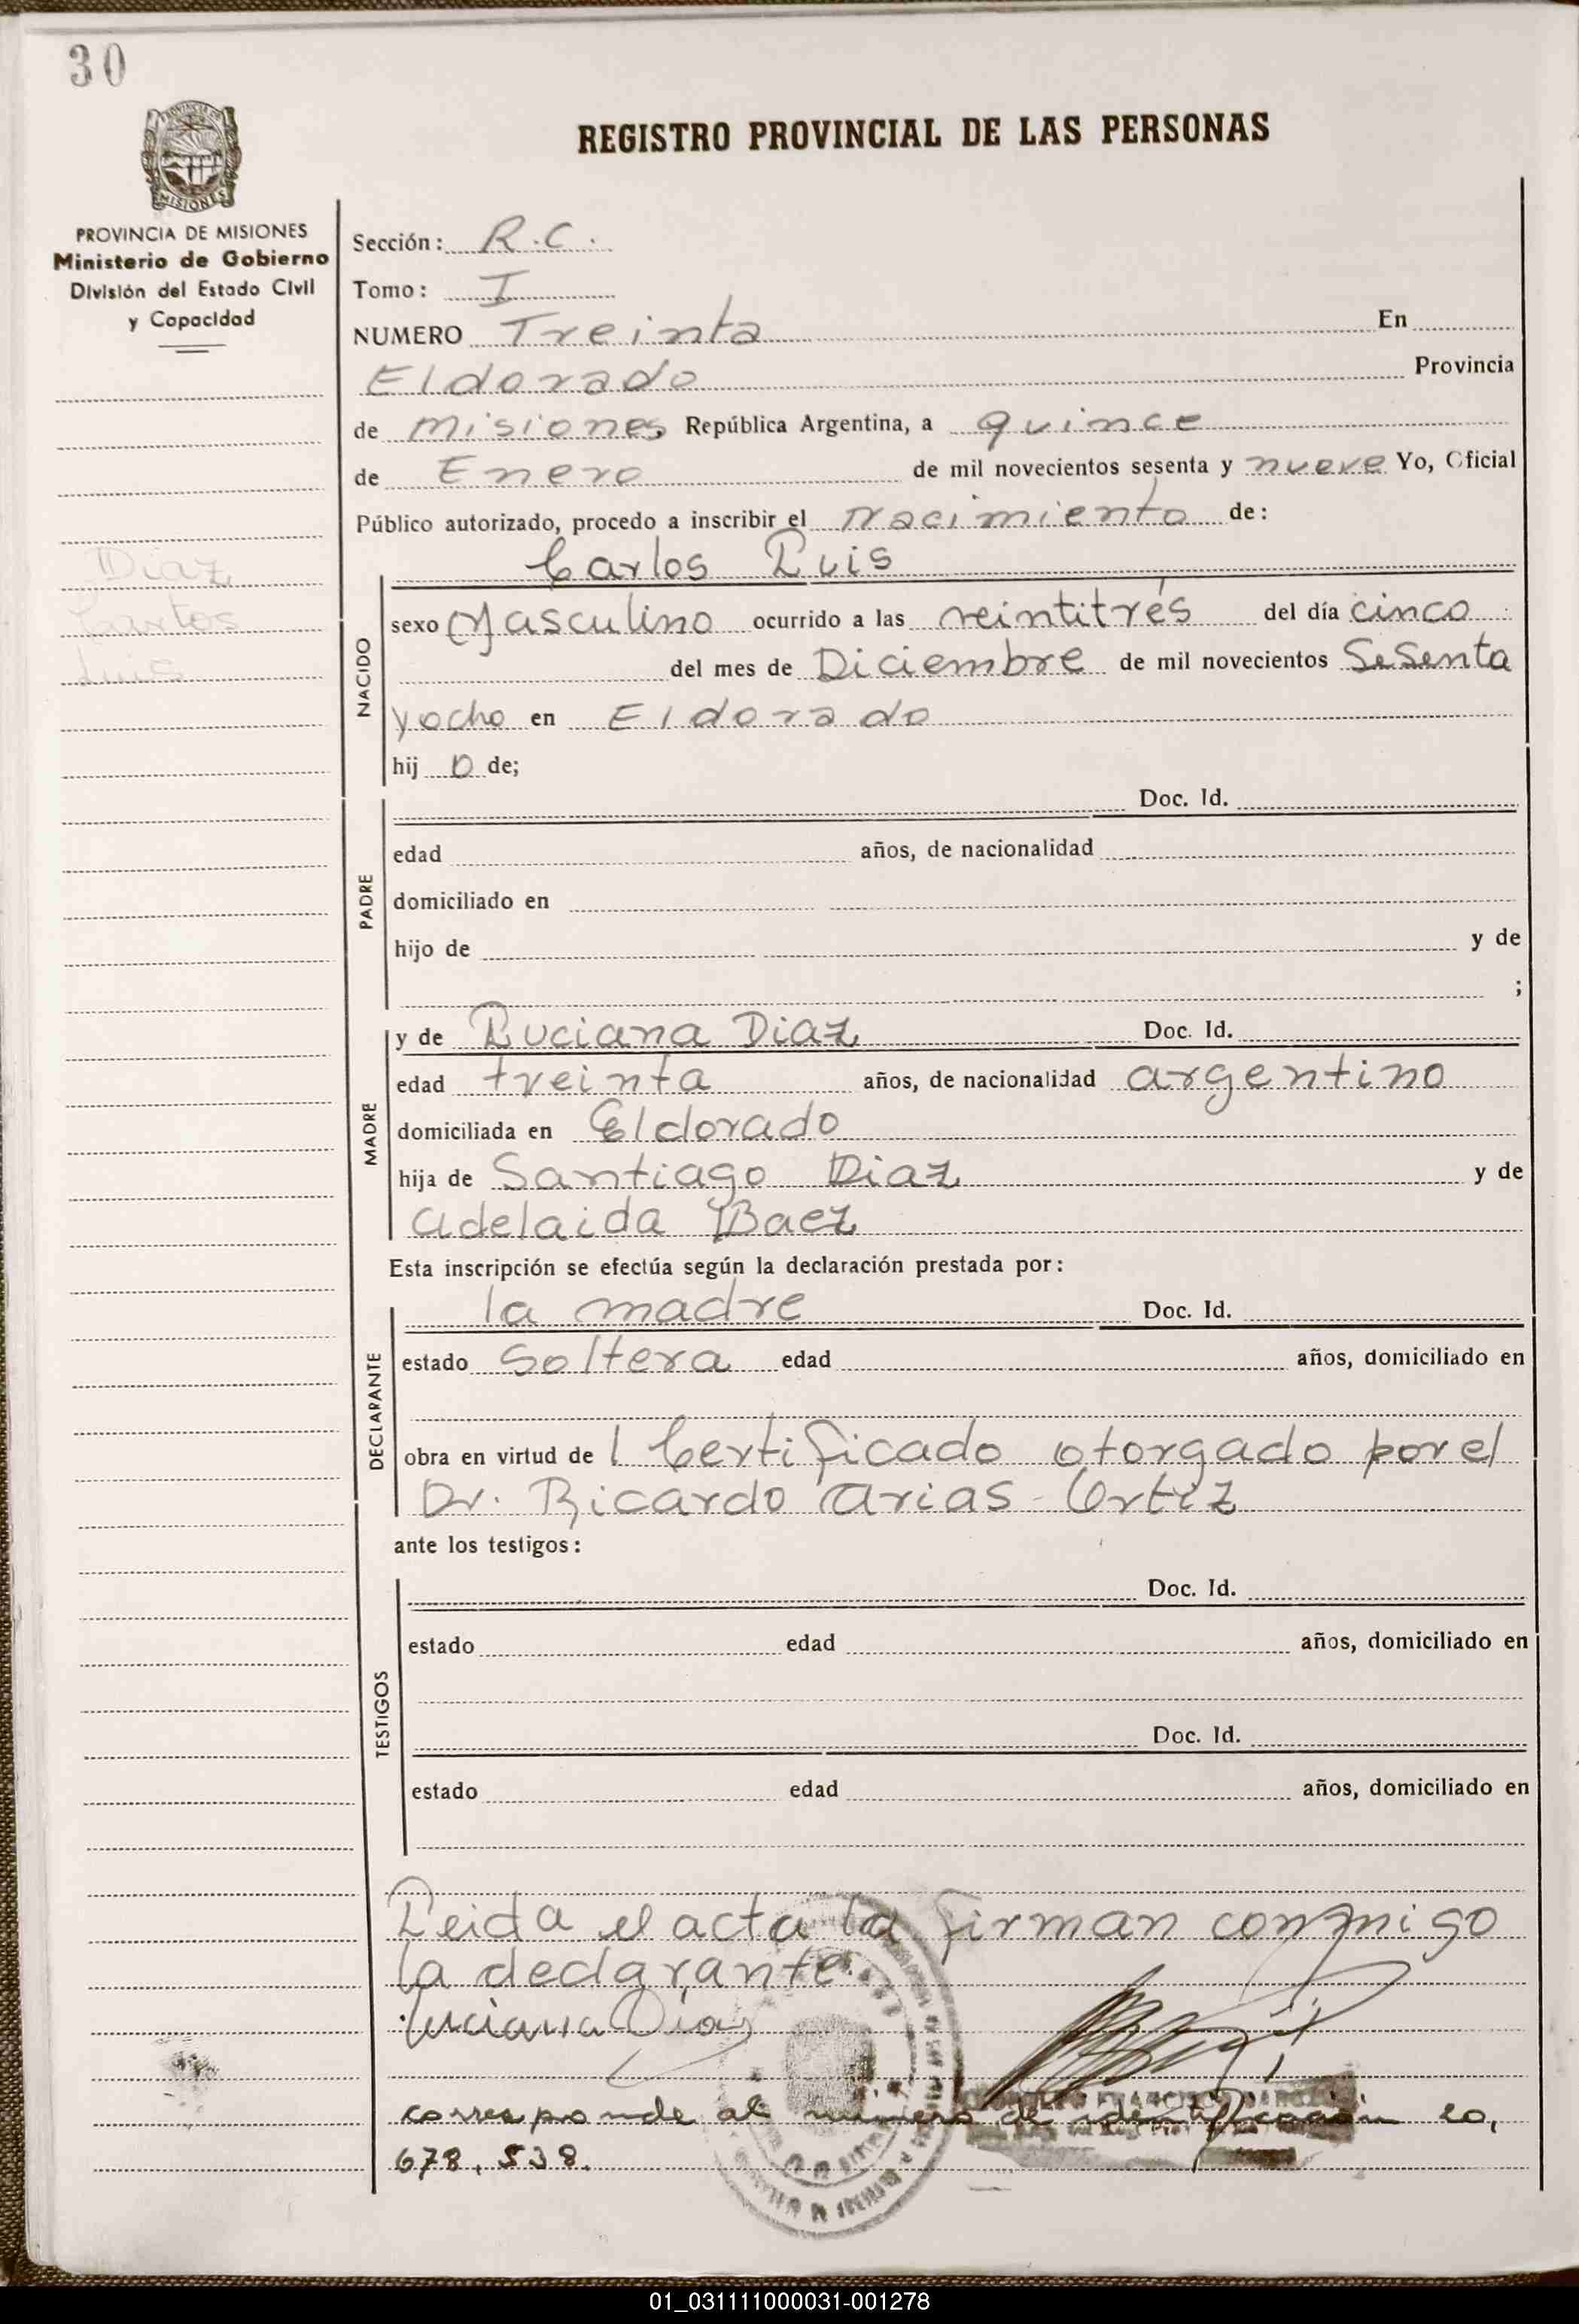 30
REGISTRO PROVINCIAL DE LAS PERSONAS
PROVINCIA DE MISIONES
MISIONES
PROVINCIA DE MISIONES
Ministerio de Gobierno
División del Estado Civil
y Capacidad
Diaz
Carlos
Luis
Sección: R.C.
Tomo: I
NUMERO Treinta En
Eldorado Provincia
de Misiones República Argentina, a quince
de Enero de mil novecientos sesenta y nueve Yo, Oficial
Público autorizado, procedo a inscribir el Nacimiento de:
Carlos Luis
NACIDO
sexo Masculino ocurrido a las veintitrés del día cinco
del mes de Diciembre de mil novecientos Sesenta
y ocho en Eldorado
hij o de;
PADRE
Doc. Id.
edad años, de nacionalidad
domiciliado en
hijo de y de
;
MADRE
y de Luciana Diaz Doc. Id.
edad treinta años, de nacionalidad argentino
domiciliada en Eldorado
hija de Santiago Diaz y de
Adelaida Baez
Esta inscripción se efectúa según la declaración prestada por:
DECLARANTE
la madre Doc. Id.
estado Soltera edad años, domiciliado en
obra en virtud de l Certificado otorgado por el
Dr. Ricardo Arias Ortiz
ante los testigos:
TESTIGOS
Doc. Id.
estado edad años, domiciliado en
Doc. Id.
estado edad años, domiciliado en
Leida el acta la firman conmigo
la declarante.
Luciana Diaz
corresponde al número de identificación 20,
678, 538.
01_031111000031-001278